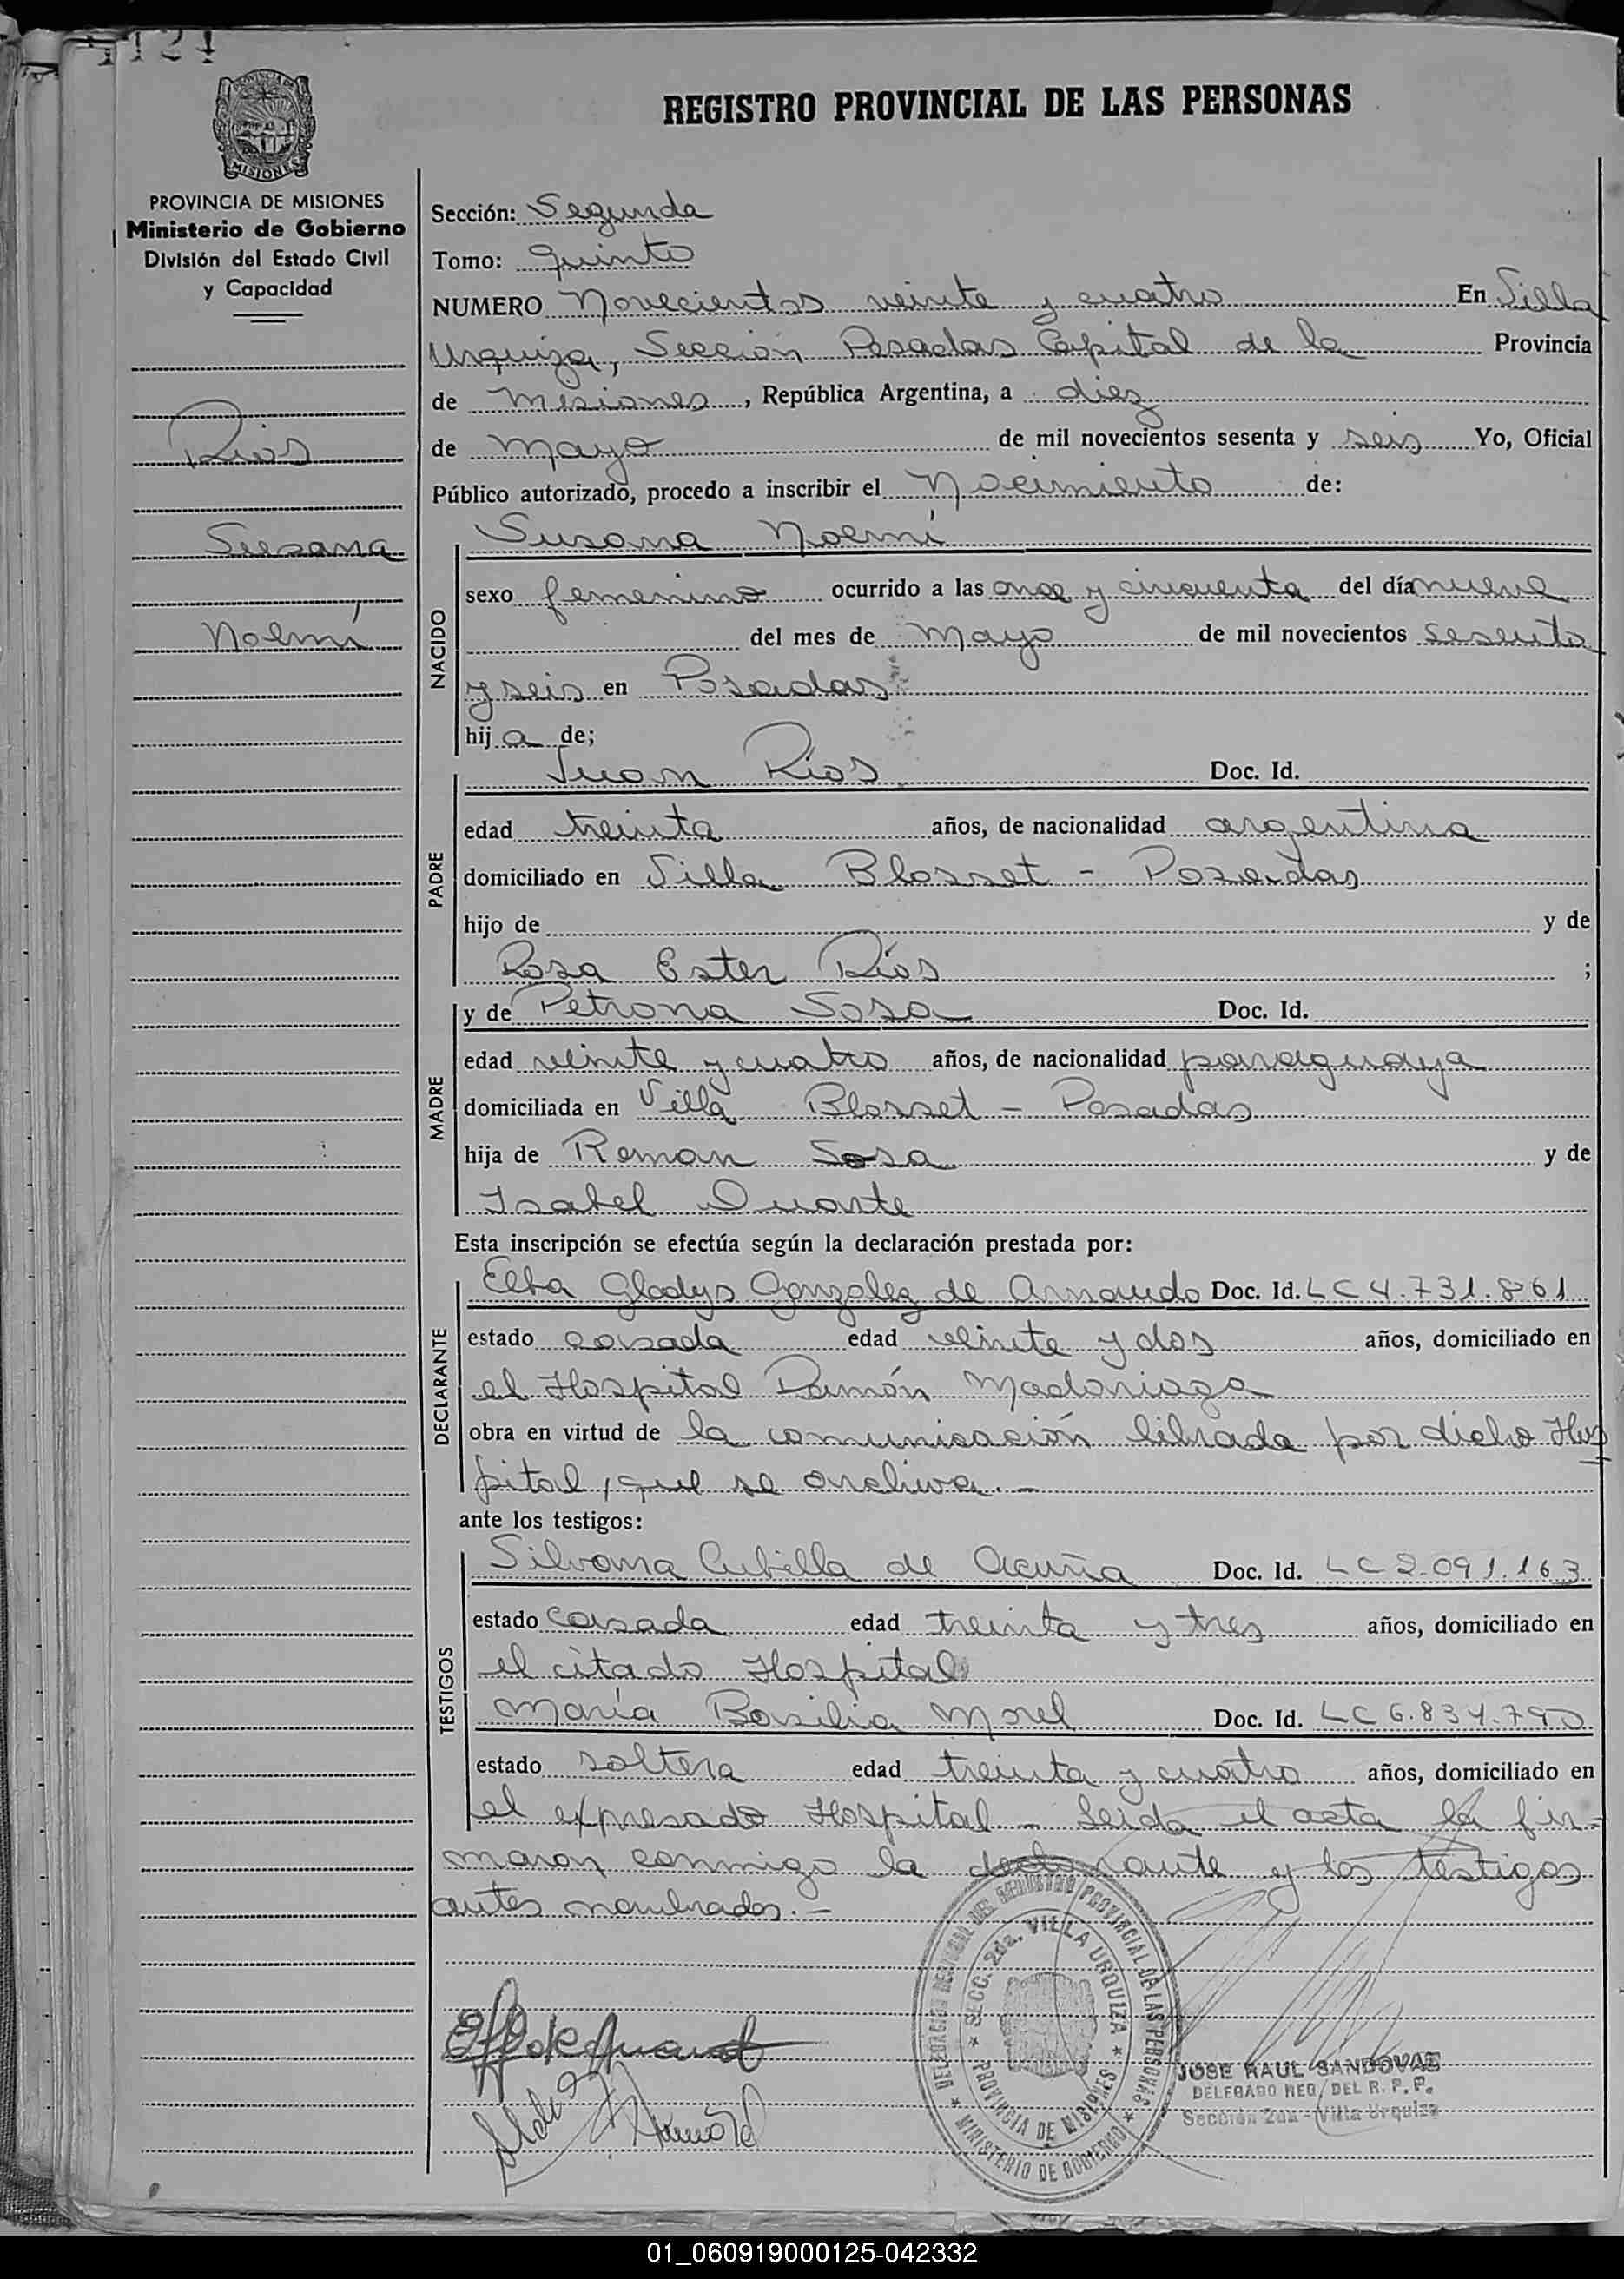 REGISTRO PROVINCIAL DE LAS PERSONAS
MISIONES
PROVINCIA DE MISIONES
Ministerio de Gobierno
División del Estado Civil
y Capacidad
Rios
Susana
Noemí
Sección: Segunda
Tomo: Quinto
NUMERO Novecientos veinte y cuatro En Villa
Urquiza, Sección Posadas Capital de la Provincia
de Misiones, República Argentina, a diez
de Mayo de mil novecientos sesenta y seis Yo, Oficial
Público autorizado, procedo a inscribir el Nacimiento de:
NACIDO
Susana Noemí
sexo femenino ocurrido a las once y cincuenta del día nueve
del mes de Mayo de mil novecientos sesenta
y seis en Posadas
hija de;
PADRE
Juan Ríos Doc. Id.
edad treinta años, de nacionalidad argentina
domiciliado en Villa Blosset - Posadas
hijo de y de
Rosa Ester Ríos ;
MADRE
y de Petrona Sosa Doc. Id.
edad veinte y cuatro años, de nacionalidad paraguaya
domiciliada en Villa Blosset - Posadas
hija de Roman Sosa y de
Isabel Duarte
Esta inscripción se efectúa según la declaración prestada por:
DECLARANTE
Elba Gladys Gonzalez de Armando Doc. Id. LC 4.731.861
estado casada edad veinte y dos años, domiciliado en
el Hospital Ramón Madariaga
obra en virtud de la comunicación librada por dicho Hos
pital, que se archiva.-
ante los testigos:
TESTIGOS
Silvana Cubilla de Acuña Doc. Id. LC 2.091.163
estado Casada edad treinta y tres años, domiciliado en
el citado Hospital
María Basilia Morel Doc. Id. LC 6.834.790
estado soltera edad treinta y cuatro años, domiciliado en
el expresado Hospital - Leida el acta la fir-
maron conmigo la declarante y los testigos
antes nombrados.-
DELEGACION REGIONAL DEL REGISTRO PROVINCIAL DE LAS PERSONAS
SECC. 2da. VILLA URQUIZA
PROVINCIA DE MISIONES
MINISTERIO DE GOBIERNO
JOSE RAUL SANDOVAL
DELEGADO REG. DEL R. P. P.
Sección 2da - Villa Urquiza
01_060919000125-042332